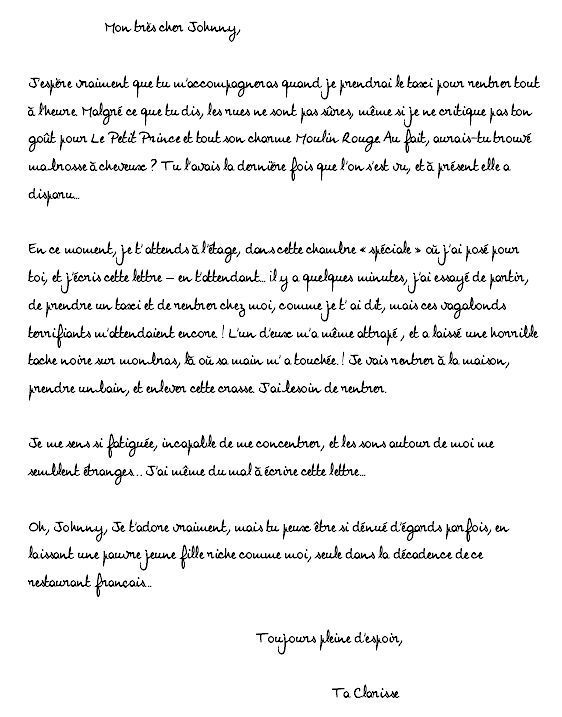 Mon très cher Johnny,
J'espère vraiment que tu m'accompagneras quand je prendrai le taxi pour rentrer tout
à l'heure. Malgré ce que tu dis, les rues ne sont pas sûres, même si je ne critique pas ton
goût pour Le Petit Prince et tout son charme Moulin Rouge Au fait, aurais-tu trouvé
ma brosse à cheveux ? Tu l'avais la dernière fois que l'on s'est vu, et à présent elle a
disparu...
En ce moment, je t'attends à l'étage, dans cette chambre « spéciale » où j'ai posé pour
toi, et j'écris cette lettre – en t'attendant... il y a quelques minutes, j'ai essayé de partir,
de prendre un taxi et de rentrer chez moi, comme je t' ai dit, mais ces vagabonds
terrifiants m'attendaient encore ! L'un d'eux m'a même attrapé , et a laissé une horrible
tache noire sur mon bras, là où sa main m' a touchée ! Je vais rentrer à la maison,
prendre un bain, et enlever cette crasse. J'ai besoin de rentrer.
Je me sens si fatiguée, incapable de me concentrer, et les sons autour de moi me
semblent étranges... J'ai même du mal à écrire cette lettre...
Oh, Johnny, Je t'adore vraiment, mais tu peux être si dénué d'égards parfois, en
laissant une pauvre jeune fille riche comme moi, seule dans la décadence de ce
restaurant français...
Toujours pleine d'espoir,
Ta Clarisse